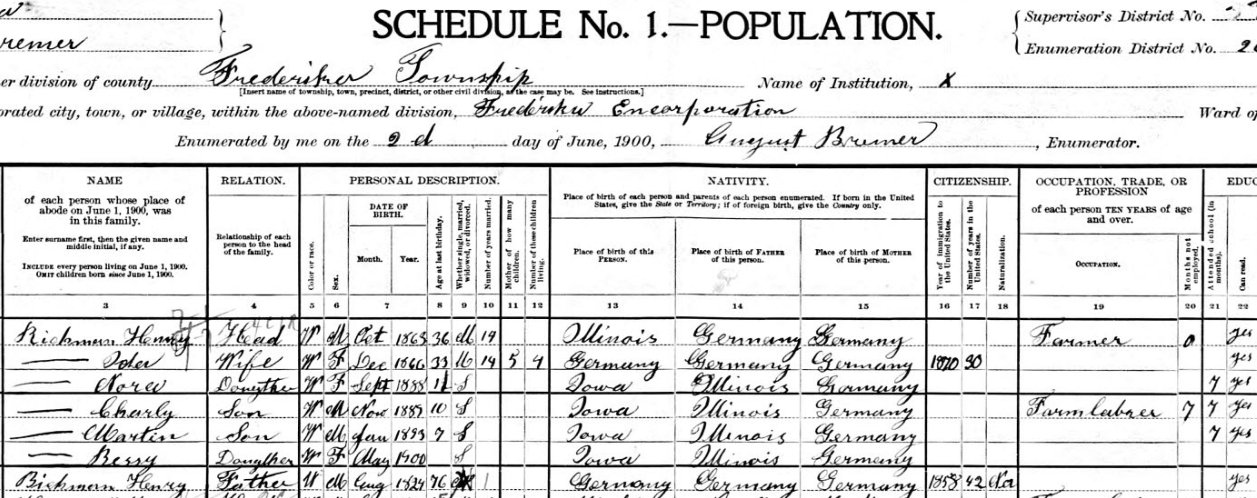 SCHEDULE No. 1.—POPULATION.
Supervisor's District No.
Enumeration District No. 2
remer
er division of county Frederiker Township Name of Institution, X
[Insert name of township, town, precinct, district, or other civil division, as the case may be. See instructions.]
orated city, town, or village, within the above-named division, Frederika Encorporation Ward of
Enumerated by me on the 2d day of June, 1900, August Bremer, Enumerator.
NAME RELATION. PERSONAL DESCRIPTION. NATIVITY. CITIZENSHIP. OCCUPATION, TRADE, OR PROFESSION EDUC
of each person whose place of abode on June 1, 1900, was in this family.
Enter surname first, then the given name and middle initial, if any.
INCLUDE every person living on June 1, 1900. OMIT children born since June 1, 1900.
Relationship of each person to the head of the family.
Color or race.
Sex.
DATE OF BIRTH.
Month. Year.
Age at last birthday.
Whether single, married, widowed, or divorced.
Number of years married.
Mother of how many children.
Number of these children living.
Place of birth of each person and parents of each person enumerated. If born in the United States, give the State or Territory; if of foreign birth, give the Country only.
Place of birth of this PERSON.
Place of birth of FATHER of this person.
Place of birth of MOTHER of this person.
Year of immigration to the United States.
Number of years in the United States.
Naturalization.
of each person TEN YEARS of age and over.
OCCUPATION.
Months not employed.
Attended school (in months).
Can read.
3 4 5 6 7 8 9 10 11 12 13 14 15 16 17 18 19 20 21 22
Rickman Henry Head W M Oct 1863 36 M 14 Illinois Germany Germany Farmer 0 yes
— Ida Wife W F Dec 1866 33 M 14 5 4 Germany Germany Germany 1870 30 yes
— Nora W F Sept 1888 11 S Iowa Illinois Germany 7 yes
— Charly Son W M Nov 1889 10 S Iowa Illinois Germany Farm labrer 7 7 yes
— Martin Son W M Jan 1893 7 S Iowa Illinois Germany 7 yes
— Bessy W F May 1900 S Iowa Illinois Germany
Bickman Henry Father W M Aug 1824 76 Germany Germany Germany 1858 42 Na yes